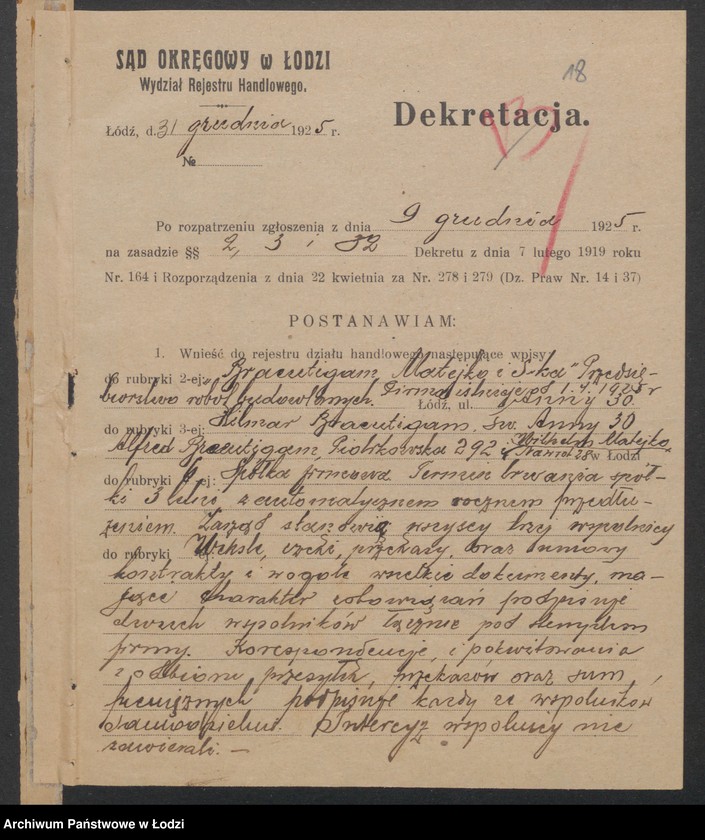 18
SĄD OKRĘGOWY w ŁODZI
Wydział Rejestru Handlowego.
Dekretacja.
Łódź, d. 31 grudnia 1925 r.
№
Po rozpatrzeniu zgłoszenia z dnia 9 grudnia 1925 r.
na zasadzie §§ 2, 3 i 82 Dekretu z dnia 7 lutego 1919 roku
Nr. 164 i Rozporządzenia z dnia 22 kwietnia za Nr. 278 i 279 (Dz. Praw Nr. 14 i 37)
POSTANAWIAM:
1. Wnieść do rejestru działu handlowego następujące wpisy
do rubryki 2-ej: „Braeutigam, Matejko i S-ka" Przedsię-
biorstwo robót budowlanych. Firma istnieje od 1.4.1925 r
Łódź, ul. Anny 30.
do rubryki 3-ej: Hilmar Braeutigam, św. Anny 30
Alfred Braeutigam, Piotrkowska 292 i Wilhelm Matejko
Nawrot 28 w Łodzi
do rubryki 6 ej: Spółka firmowa Termin trwania spół-
ki 3 letni z automatycznem rocznem przedłu-
żeniem. Zarząd stanowią wszyscy trzej wspólnicy
do rubryki ej: Weksle, czeki, przekazy, oraz umowy
kontrakty i wogóle wszelkie dokumenty, ma-
jące charakter zobowiązań podpisuje
dwuch wspólników łącznie pod stemplem
firmy. Korespondencję, i pokwitowania
z odbioru przesyłek, przekazów oraz sum
pieniężnych podpisuje każdy ze wspólników
samodzielnie. Intercyz wspólnicy nie
zawierali. —
Archiwum Państwowe w Łodzi